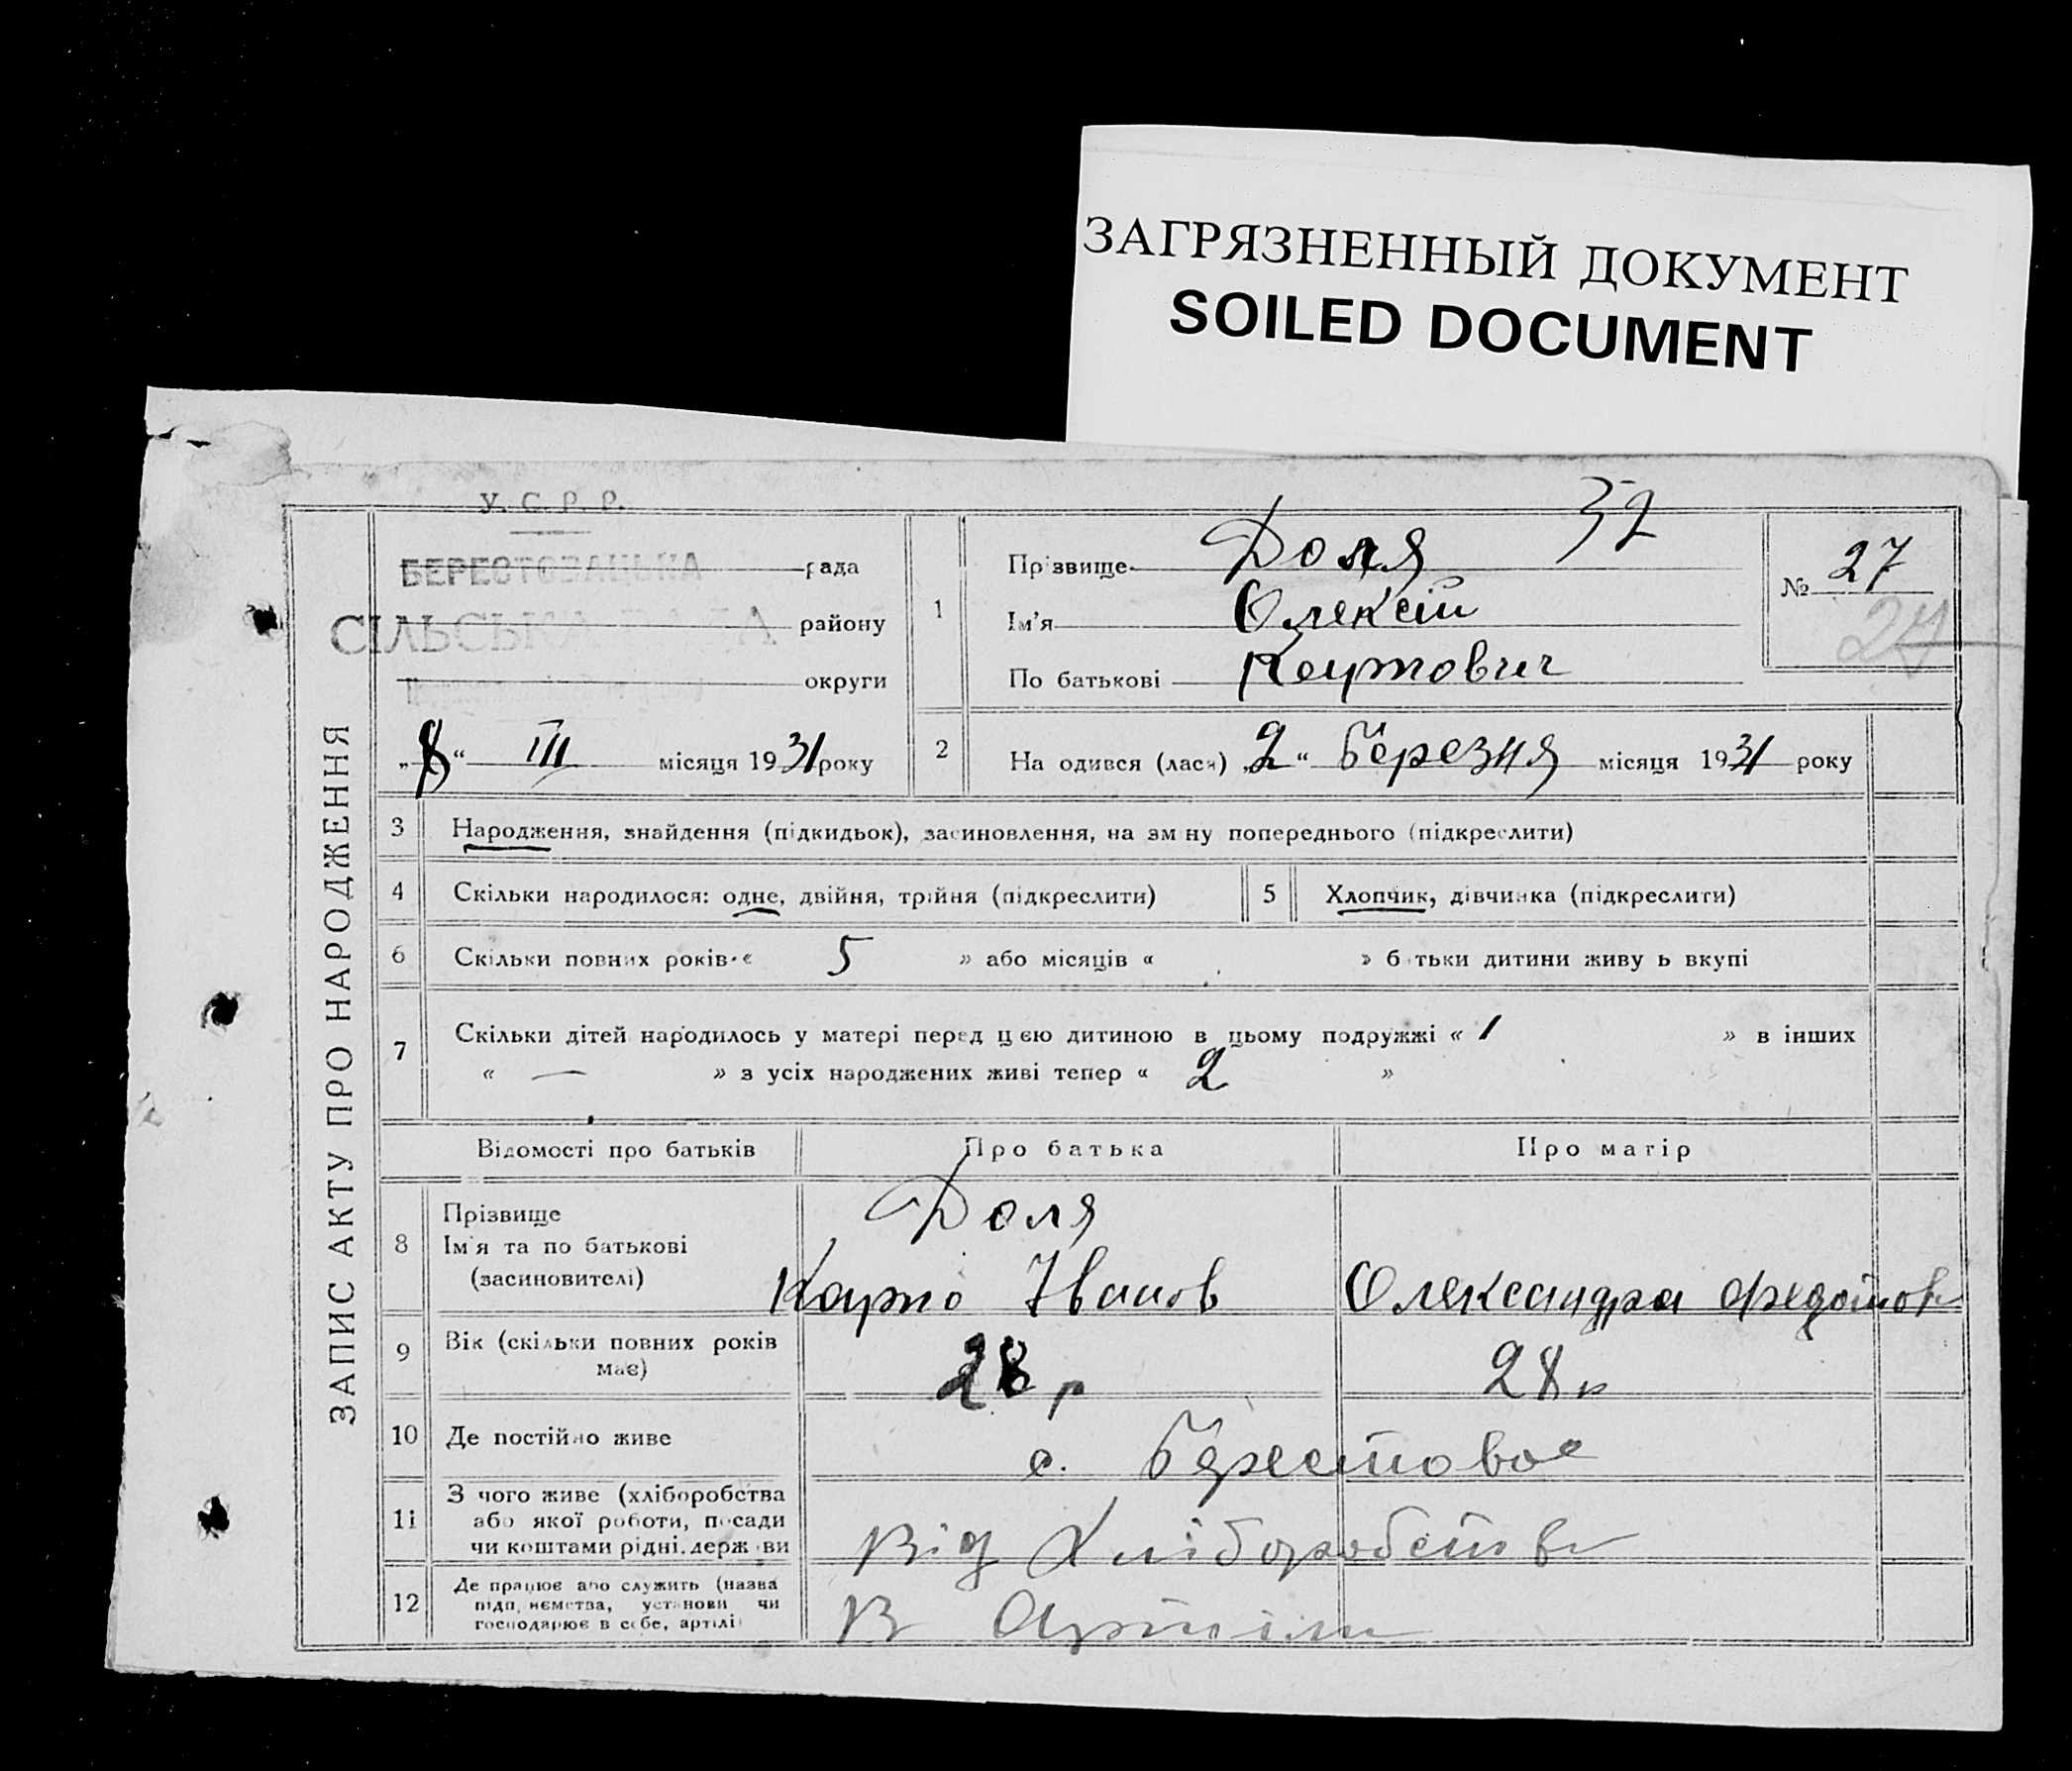 ЗАГРЯЗНЕННЫЙ ДОКУМЕНТ
SOILED DOCUMENT
У. С. Р. Р.
32
БЕРЕСТОВАЦЬКА рада
СІЛЬСЬКА РАДА району
округи
„8“ III місяця 1931 року
1
Прізвище Доля
Ім'я Олексій
По батькові Карпович
№ 27
24
2
На одився (лася) „2“ Березня місяця 1931 року
ЗАПИС АКТУ ПРО НАРОДЖЕННЯ
3 Народження, знайдення (підкидьок), засиновлення, на зм ну попереднього (підкреслити)
4 Скільки народилося: одне, двійня, трійня (підкреслити)
5 Хлопчик, дівчинка (підкреслити)
6 Скільки повних років « 5 » або місяців « » б тьки дитини живу ь вкупі
7 Скільки дітей народилось у матері перед цією дитиною в цьому подружжі « 1 » в інших
« — » з усіх народжених живі тепер « 2 »
Відомості про батьків Про батька Про матір
8 Прізвище
Ім'я та по батькові
(засиновителі)
Доля
Карпо Іванов Олександра Федотов
9 Вік (скільки повних років
має)
28 р 28 р
10 Де постійно живе с. Берестовое
11 З чого живе (хліборобства
або якої роботи, посади
чи коштами рідні, держ ви
Від Хліборобства
12 Де працює або служить (назва
підп иємства, установи чи
господарює в себе, артілі)
В Артілі